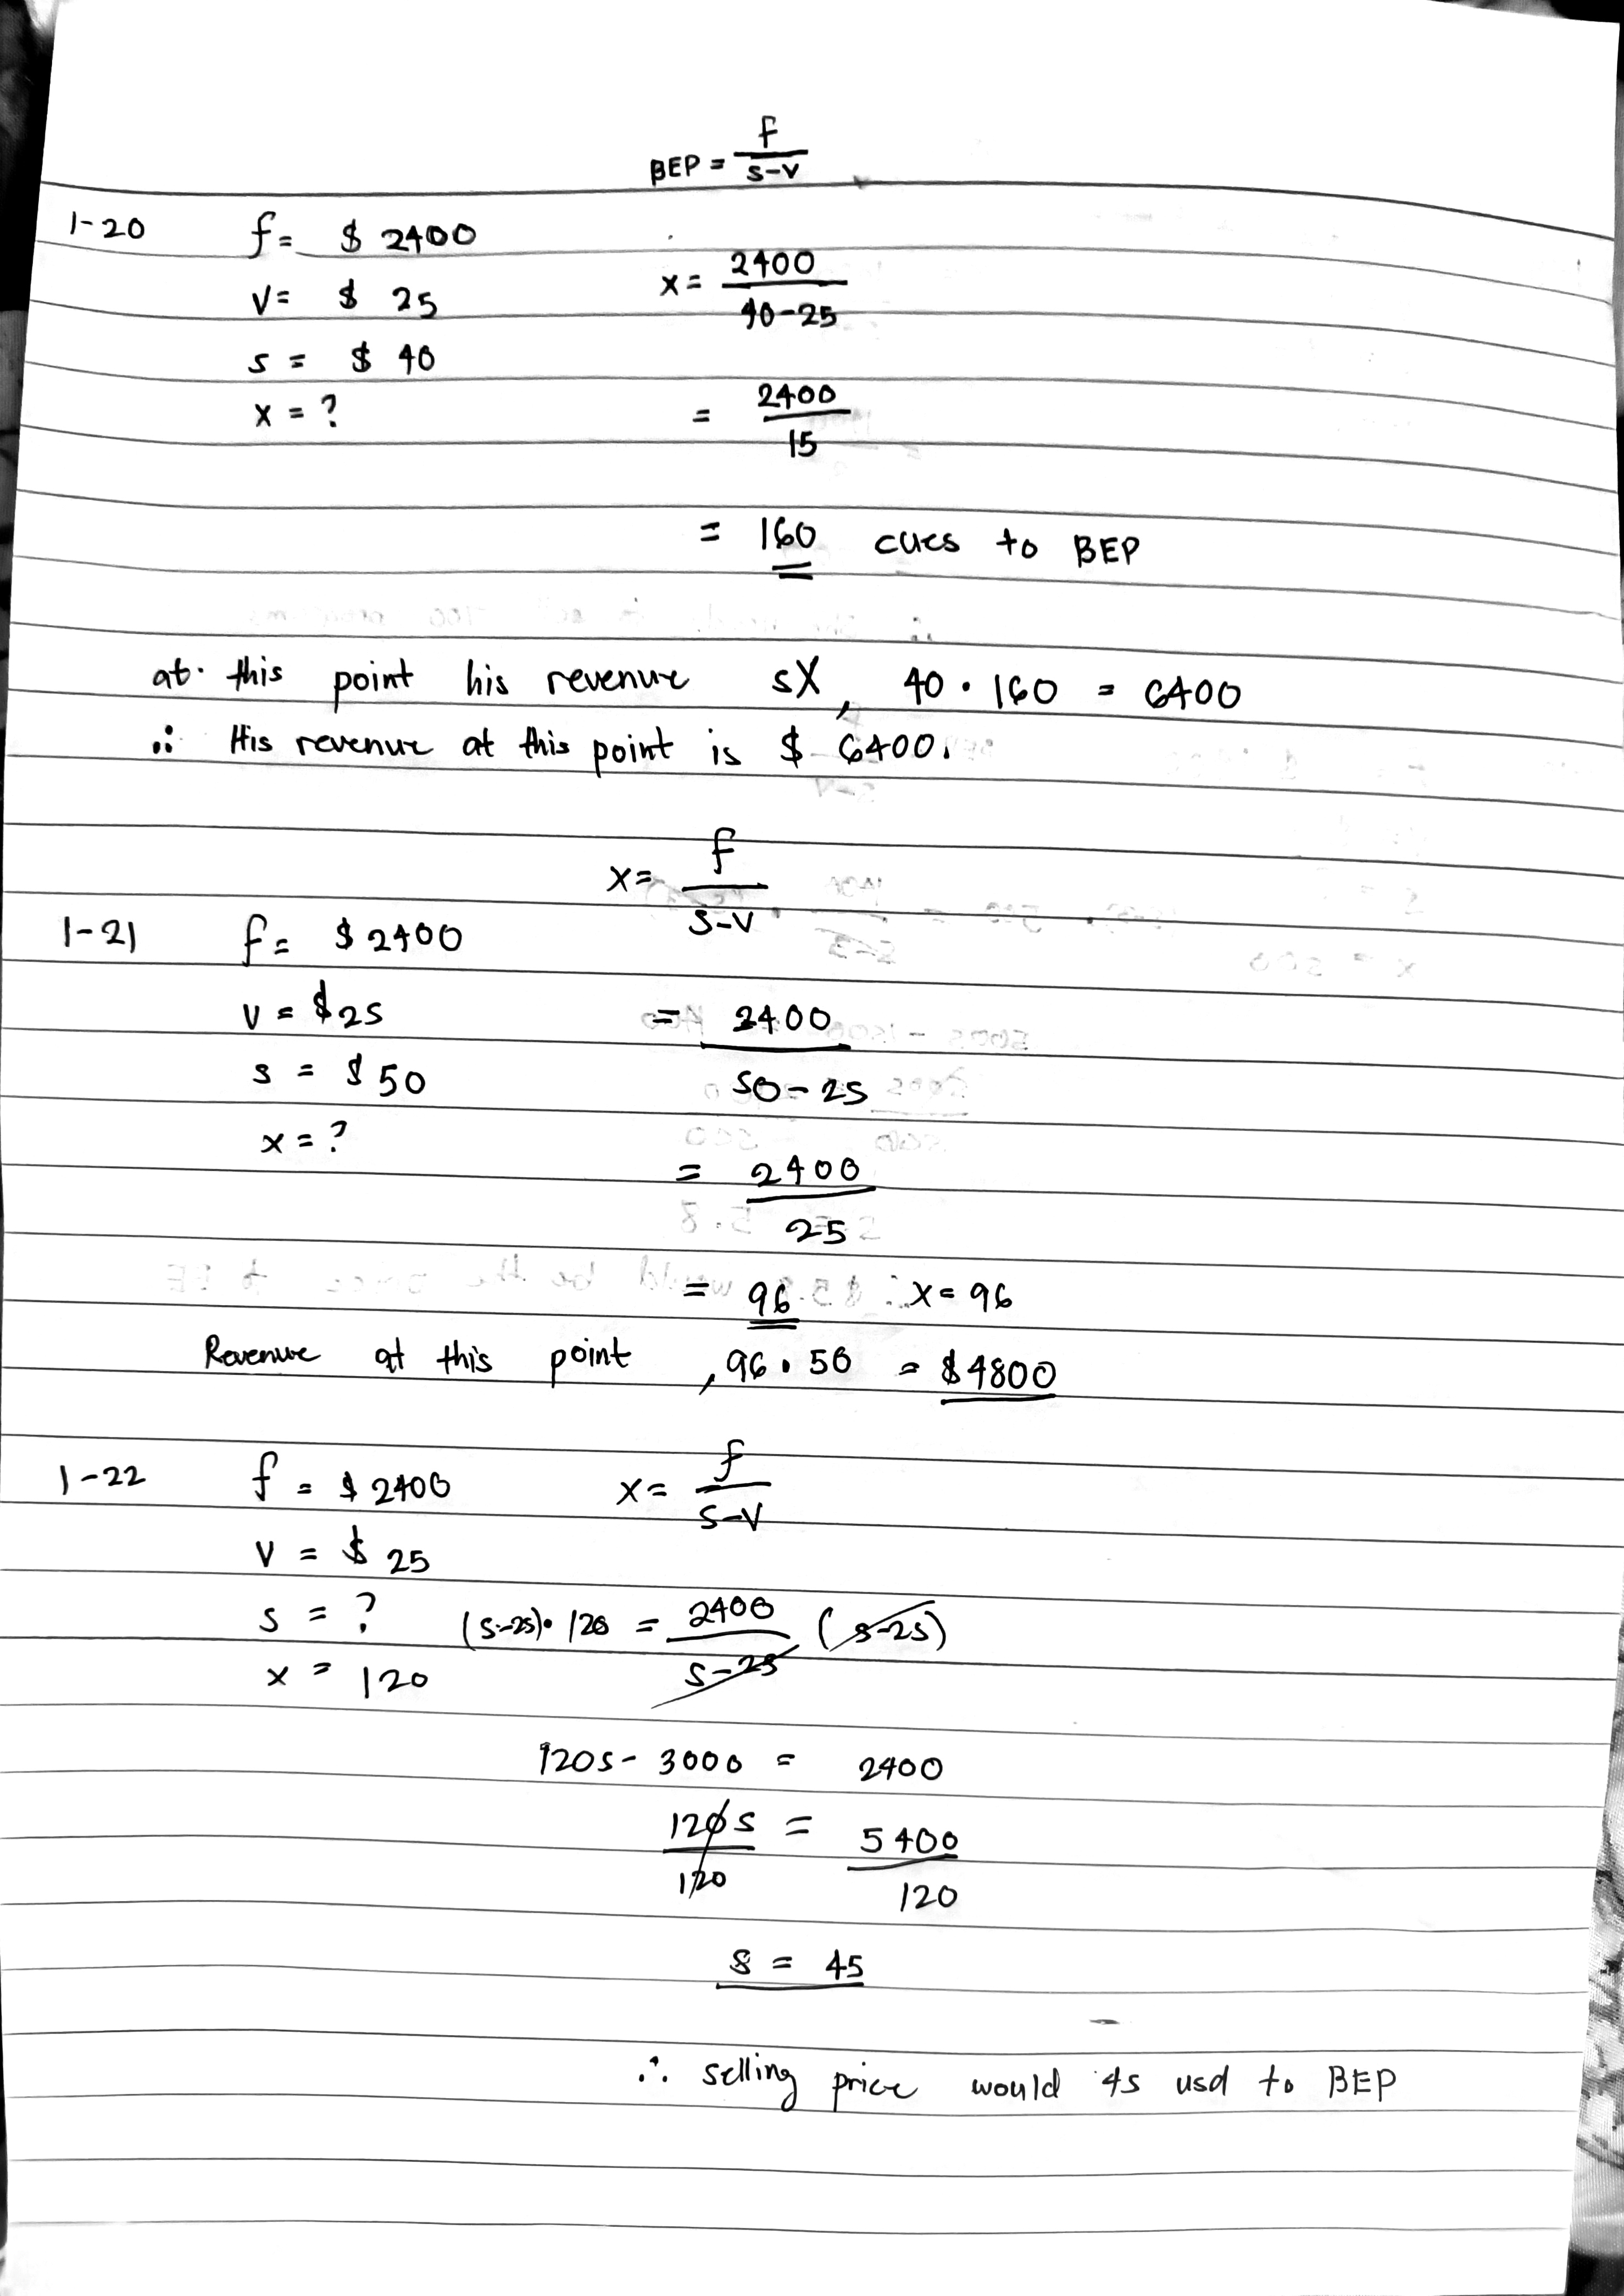 BEP = f / s-v
1-20 f = $ 2400
v = $ 25 x = 2400 / 40-25
s = $ 40
x = ? = 2400 / 15
= 160 cues to BEP
at this point his revenue sX, 40 • 160 = 6400
∴ His revenue at this point is $ 6400.
x = f / s-v
1-21 f = $ 2400
v = $25 = 2400 / 50-25
s = $ 50
x = ? = 2400 / 25
= 96 ∴ x = 96
Revenue at this point, 96 • 50 = $4800
1-22 f = $ 2400 x = f / s-v
v = $ 25
s = ? (s-25)• 120 = 2400 / s-25 (s-25)
x = 120
120s - 3000 = 2400
120s / 120 = 5400 / 120
s = 45
∴ selling price would 45 usd to BEP